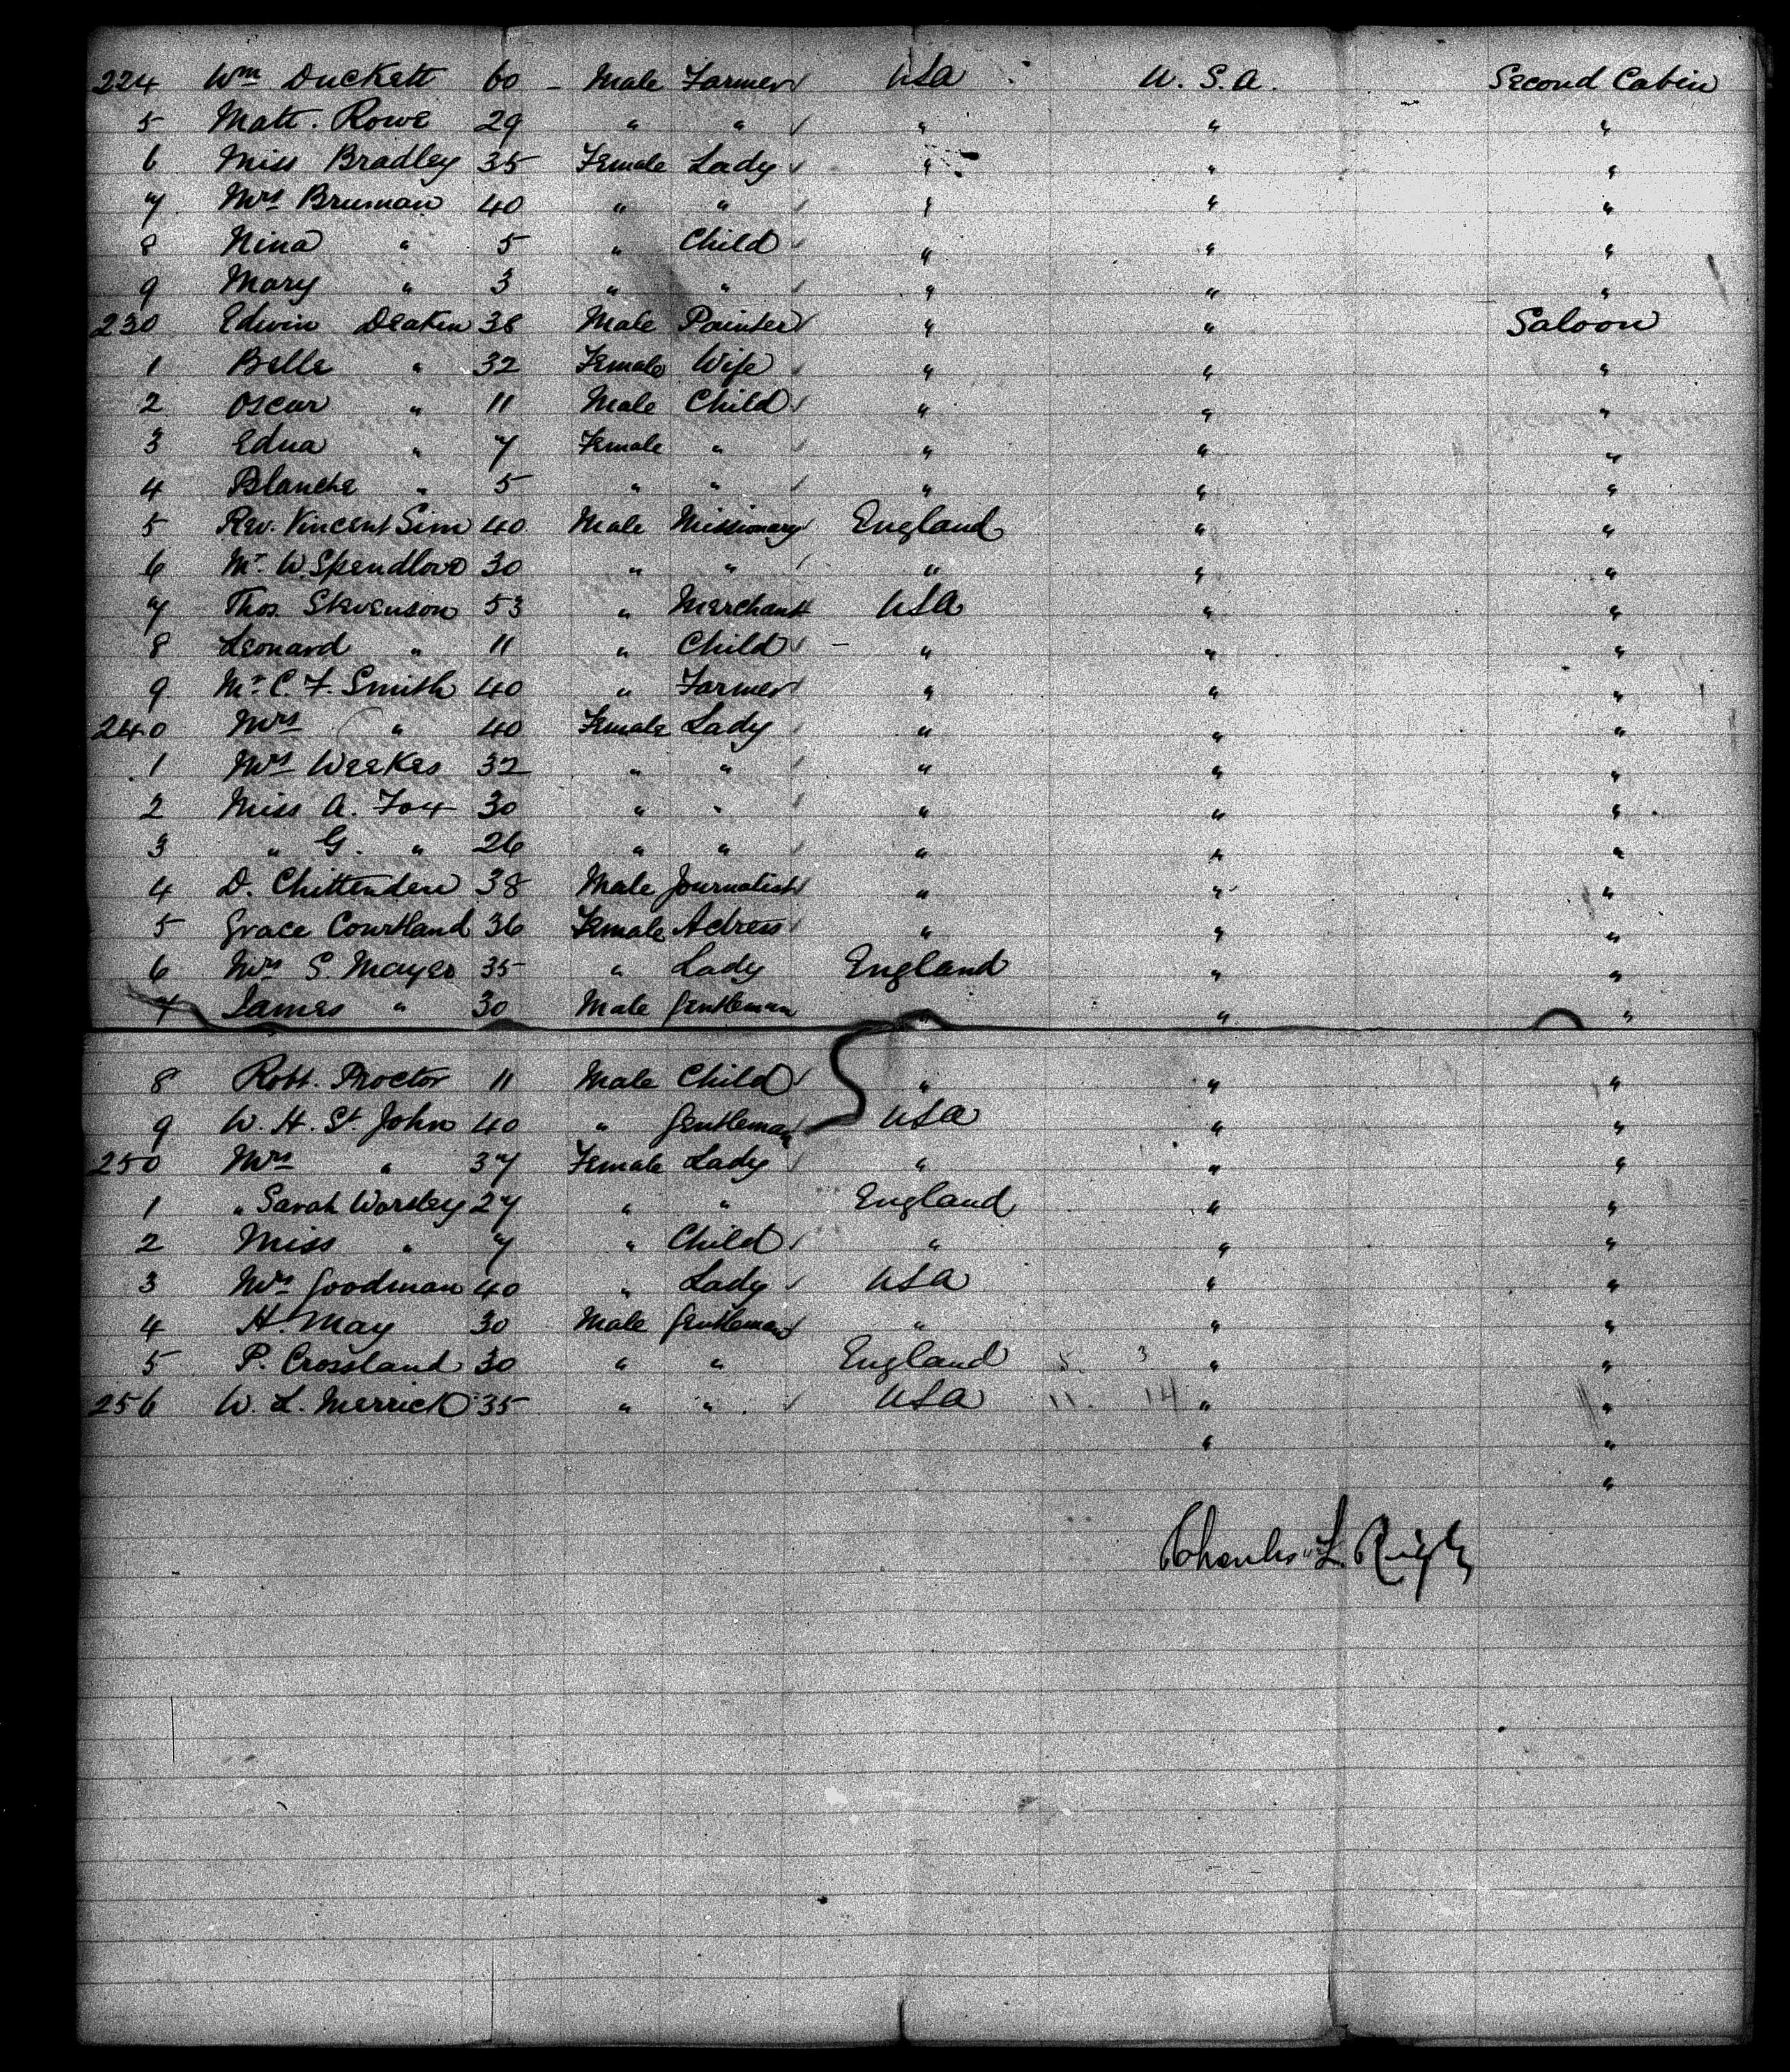 224 Wm Duckett 60 - Male Farmer USA U. S. A. Second Cabin
5 Matt. Rowe 29 " " " " "
6 Miss Bradley 35 Female Lady " " "
7 Mrs Bruman 40 " " " " "
8 Nina " 5 " Child " " "
9 Mary " 3 " " " " "
230 Edwin Deakin 38 Male Painter " " Saloon
1 Belle " 32 Female Wife " " "
2 Oscar " 11 Male Child " " "
3 Edna " 7 Female " " " "
4 Blanche " 5 " " " " "
5 Rev. Vincent Sim 40 Male Missionary England " "
6 Mr W. Spendlove 30 " " " " "
7 Thos. Stevenson 53 " Merchant USA " "
8 Leonard " 11 " Child - " " "
9 Mr C. F. Smith 40 " Farmer " " "
240 Mrs " 40 Female Lady " " "
1 Mrs Weekes 32 " " " " "
2 Miss A. Fox 30 " " " " "
3 " G. " 26 " " " " "
4 D. Chittenden 38 Male Journalist " " "
5 Grace Courtland 36 Female Actress " " "
6 Mrs S. Mayer 35 " Lady England " "
7 James " 30 Male Gentleman " " "
8 Robt. Proctor 11 Male Child " " "
9 W. H. St. John 40 " Gentleman USA " "
250 Mrs " 37 Female Lady " " "
1 " Sarah Worsley 27 " " England " "
2 Miss " 7 " Child " " "
3 Mrs Goodman 40 " Lady USA " "
4 H. May 30 Male Gentleman " " "
5 P. Crossland 30 " " England 5. 3 " "
256 W. L. Merrick 35 " " USA 11. 14 " "
" "
"
Charles L.